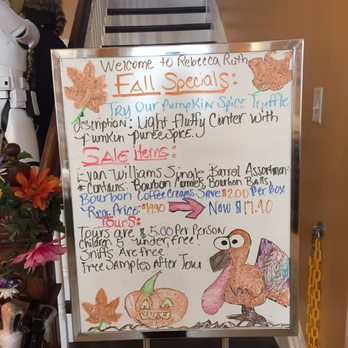 Welcome to Rebecca Ruth
Fall Specials:
Try Our Pumpkin Spice Truffle
Description: Light Fluffy Center with
Pumkin-puree spice.
Sale Items:
Evan Williams Single Barrel Assortment
* Contains: Bourbon Caramels, Bourbon Balls
Bourbon Coffee Creams - Save $2.00 Per Box
Real Price $19.90 Now $17.90
Tours:
Tours are $5.00 Per Person
Children 5 - under, free!
Sniffs Are free
Free Samples After Tour